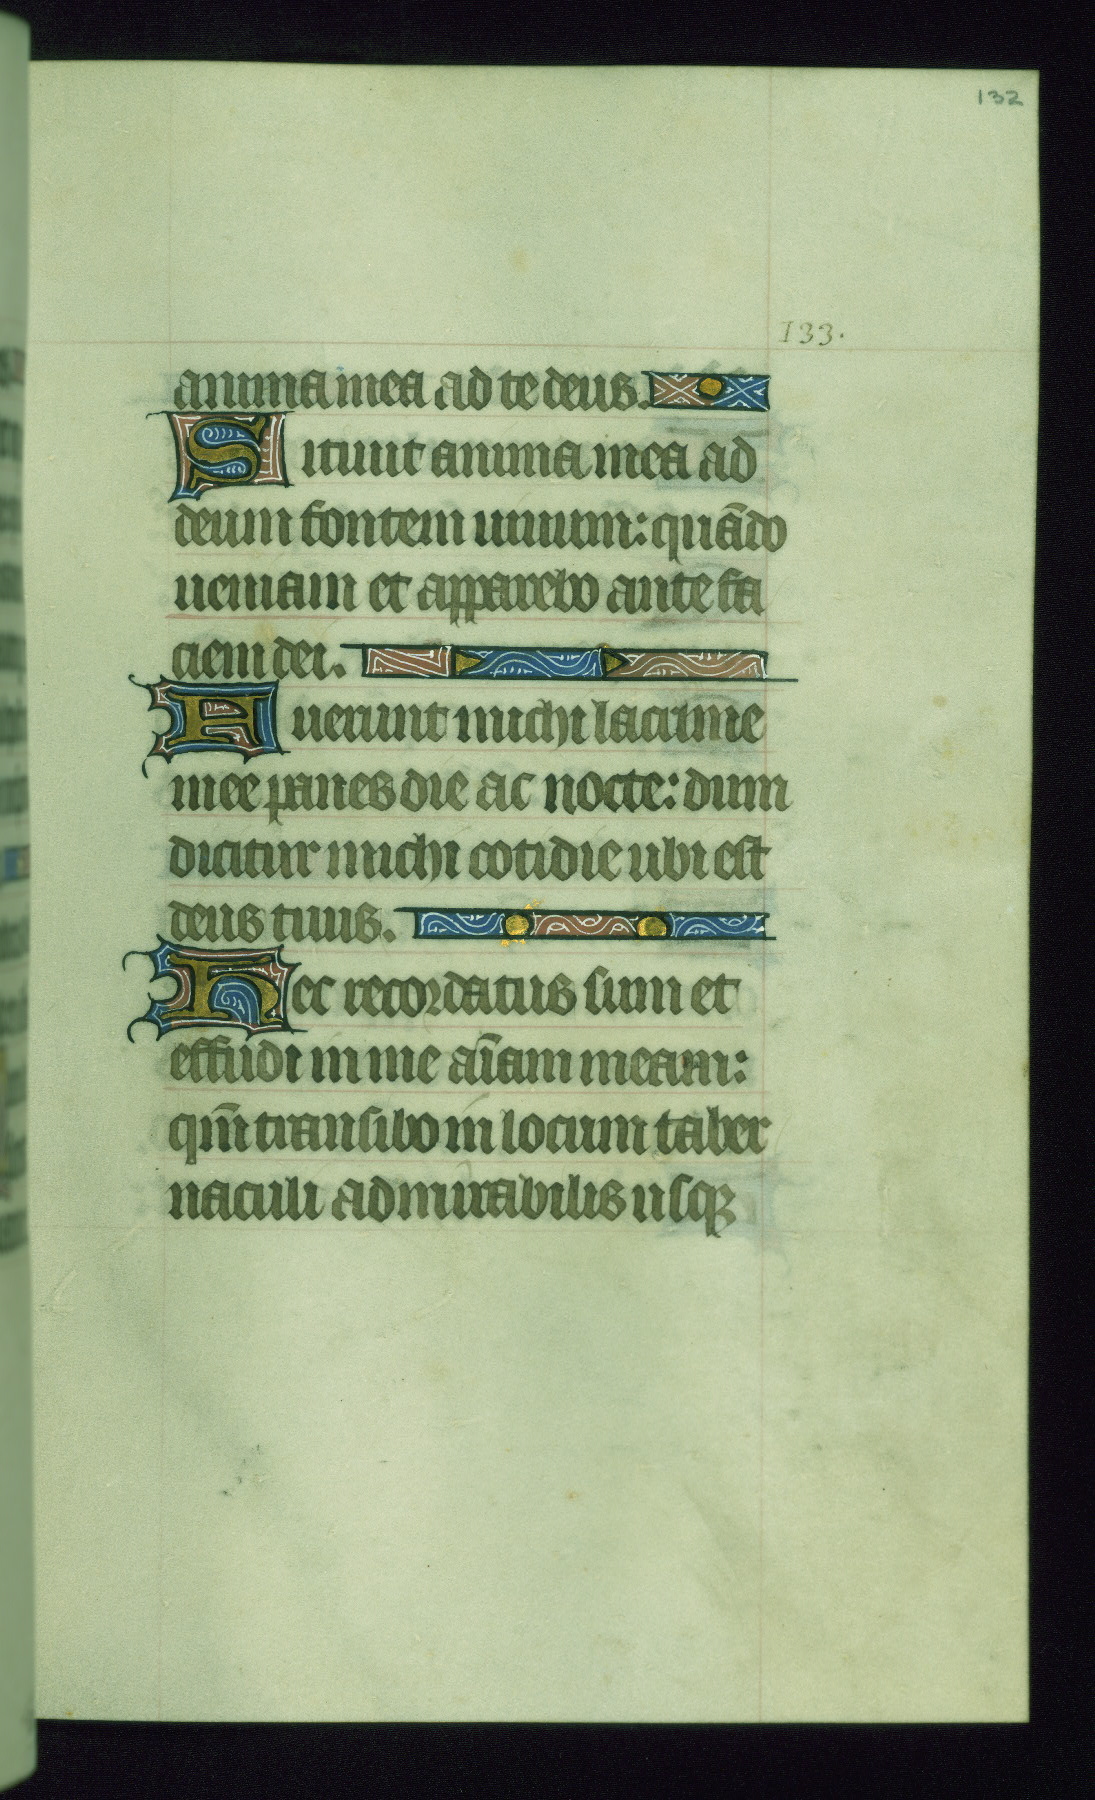 132
133.
anima mea ad te deus.
Sitiuit anima mea ad
deum fontem uiuum: quādo
ueniam et apparebo ante fa
ciem dei.
Fuerunt michi lacrime
mee panes die ac nocte: dum
dicitur michi cotidie ubi est
deus tuus.
Hec recordatus sum et
effudi in me aīam meam:
qm̄ transibo in locum taber
naculi admirabilis usqꝫ